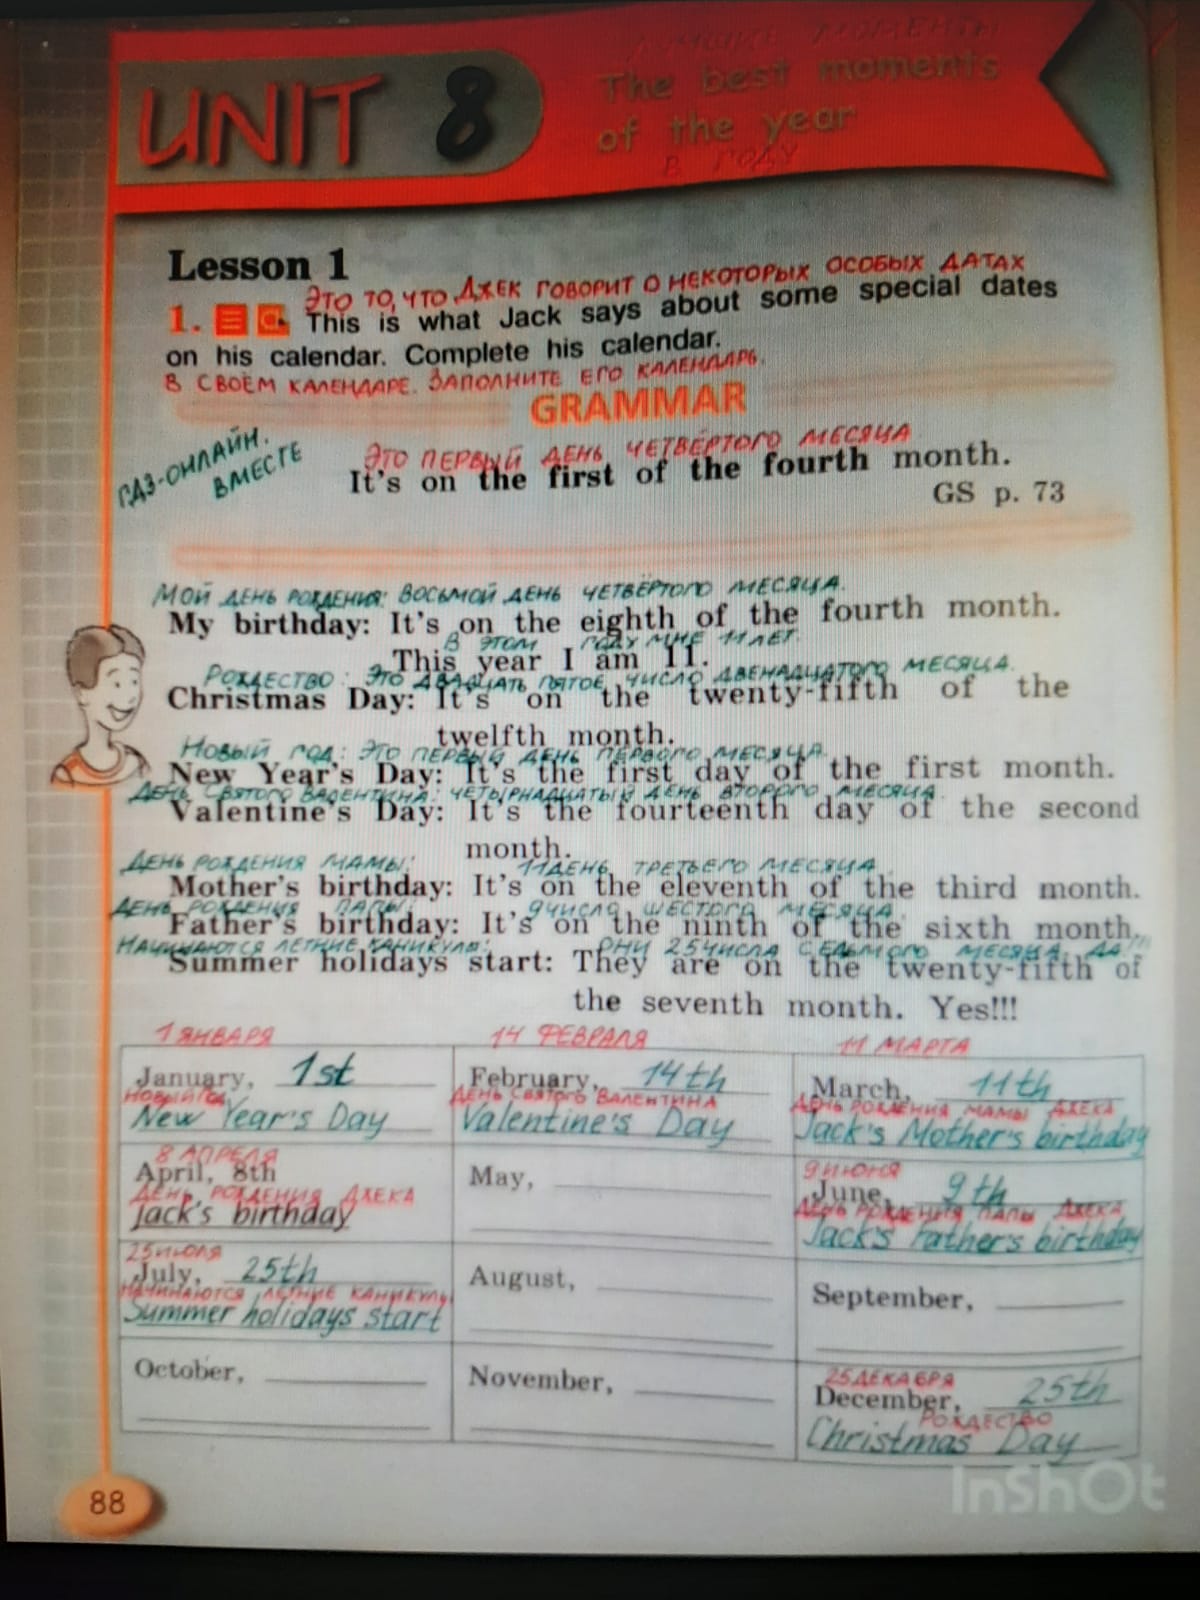 ЛУЧШИЕ МОМЕНТЫ
UNIT 8
The best moments
of the year
В ГОДУ
Lesson 1
ЭТО ТО, ЧТО ДЖЕК ГОВОРИТ О НЕКОТОРЫХ ОСОБЫХ ДАТАХ
1. This is what Jack says about some special dates
on his calendar. Complete his calendar.
В СВОЁМ КАЛЕНДАРЕ. ЗАПОЛНИТЕ ЕГО КАЛЕНДАРЬ.
GRAMMAR
ГДЗ-ОНЛАЙН.
ВМЕСТЕ
ЭТО ПЕРВЫЙ ДЕНЬ ЧЕТВЁРТОГО МЕСЯЦА
It's on the first of the fourth month.
GS p. 73
МОЙ ДЕНЬ РОЖДЕНИЯ: ВОСЬМОЙ ДЕНЬ ЧЕТВЁРТОГО МЕСЯЦА.
My birthday: It's on the eighth of the fourth month.
В ЭТОМ ГОДУ МНЕ 11 ЛЕТ.
This year I am 11.
РОЖДЕСТВО: ЭТО ДВАДЦАТЬ ПЯТОЕ ЧИСЛО ДВЕНАДЦАТОГО МЕСЯЦА.
Christmas Day: It's on the twenty-fifth of the
twelfth month.
НОВЫЙ ГОД: ЭТО ПЕРВЫЙ ДЕНЬ ПЕРВОГО МЕСЯЦА.
New Year's Day: It's the first day of the first month.
ДЕНЬ СВЯТОГО ВАЛЕНТИНА: ЧЕТЫРНАДЦАТЫЙ ДЕНЬ ВТОРОГО МЕСЯЦА.
Valentine's Day: It's the fourteenth day of the second
month.
ДЕНЬ РОЖДЕНИЯ МАМЫ: 11 ДЕНЬ ТРЕТЬЕГО МЕСЯЦА.
Mother's birthday: It's on the eleventh of the third month.
ДЕНЬ РОЖДЕНИЯ ПАПЫ: 9 ЧИСЛО ШЕСТОГО МЕСЯЦА.
Father's birthday: It's on the ninth of the sixth month.
НАЧИНАЮТСЯ ЛЕТНИЕ КАНИКУЛЫ: ОНИ 25 ЧИСЛА СЕДЬМОГО МЕСЯЦА. ДА!!!
Summer holidays start: They are on the twenty-fifth of
the seventh month. Yes!!!
1 ЯНВАРЯ
January, 1st
НОВЫЙ ГОД
New Year's Day
14 ФЕВРАЛЯ
February, 14th
ДЕНЬ СВЯТОГО ВАЛЕНТИНА
Valentine's Day
11 МАРТА
March, 11th
ДЕНЬ РОЖДЕНИЯ МАМЫ ДЖЕКА
Jack's Mother's birthday
8 АПРЕЛЯ
April, 8th
ДЕНЬ РОЖДЕНИЯ ДЖЕКА
Jack's birthday
May,
9 ИЮНЯ
June, 9th
ДЕНЬ РОЖДЕНИЯ ПАПЫ ДЖЕКА
Jack's Father's birthday
25 ИЮЛЯ
July, 25th
НАЧИНАЮТСЯ ЛЕТНИЕ КАНИКУЛЫ
Summer holidays start
August,
September,
October,
November,
25 ДЕКАБРЯ
December, 25th
РОЖДЕСТВО
Christmas Day
88
InShOt